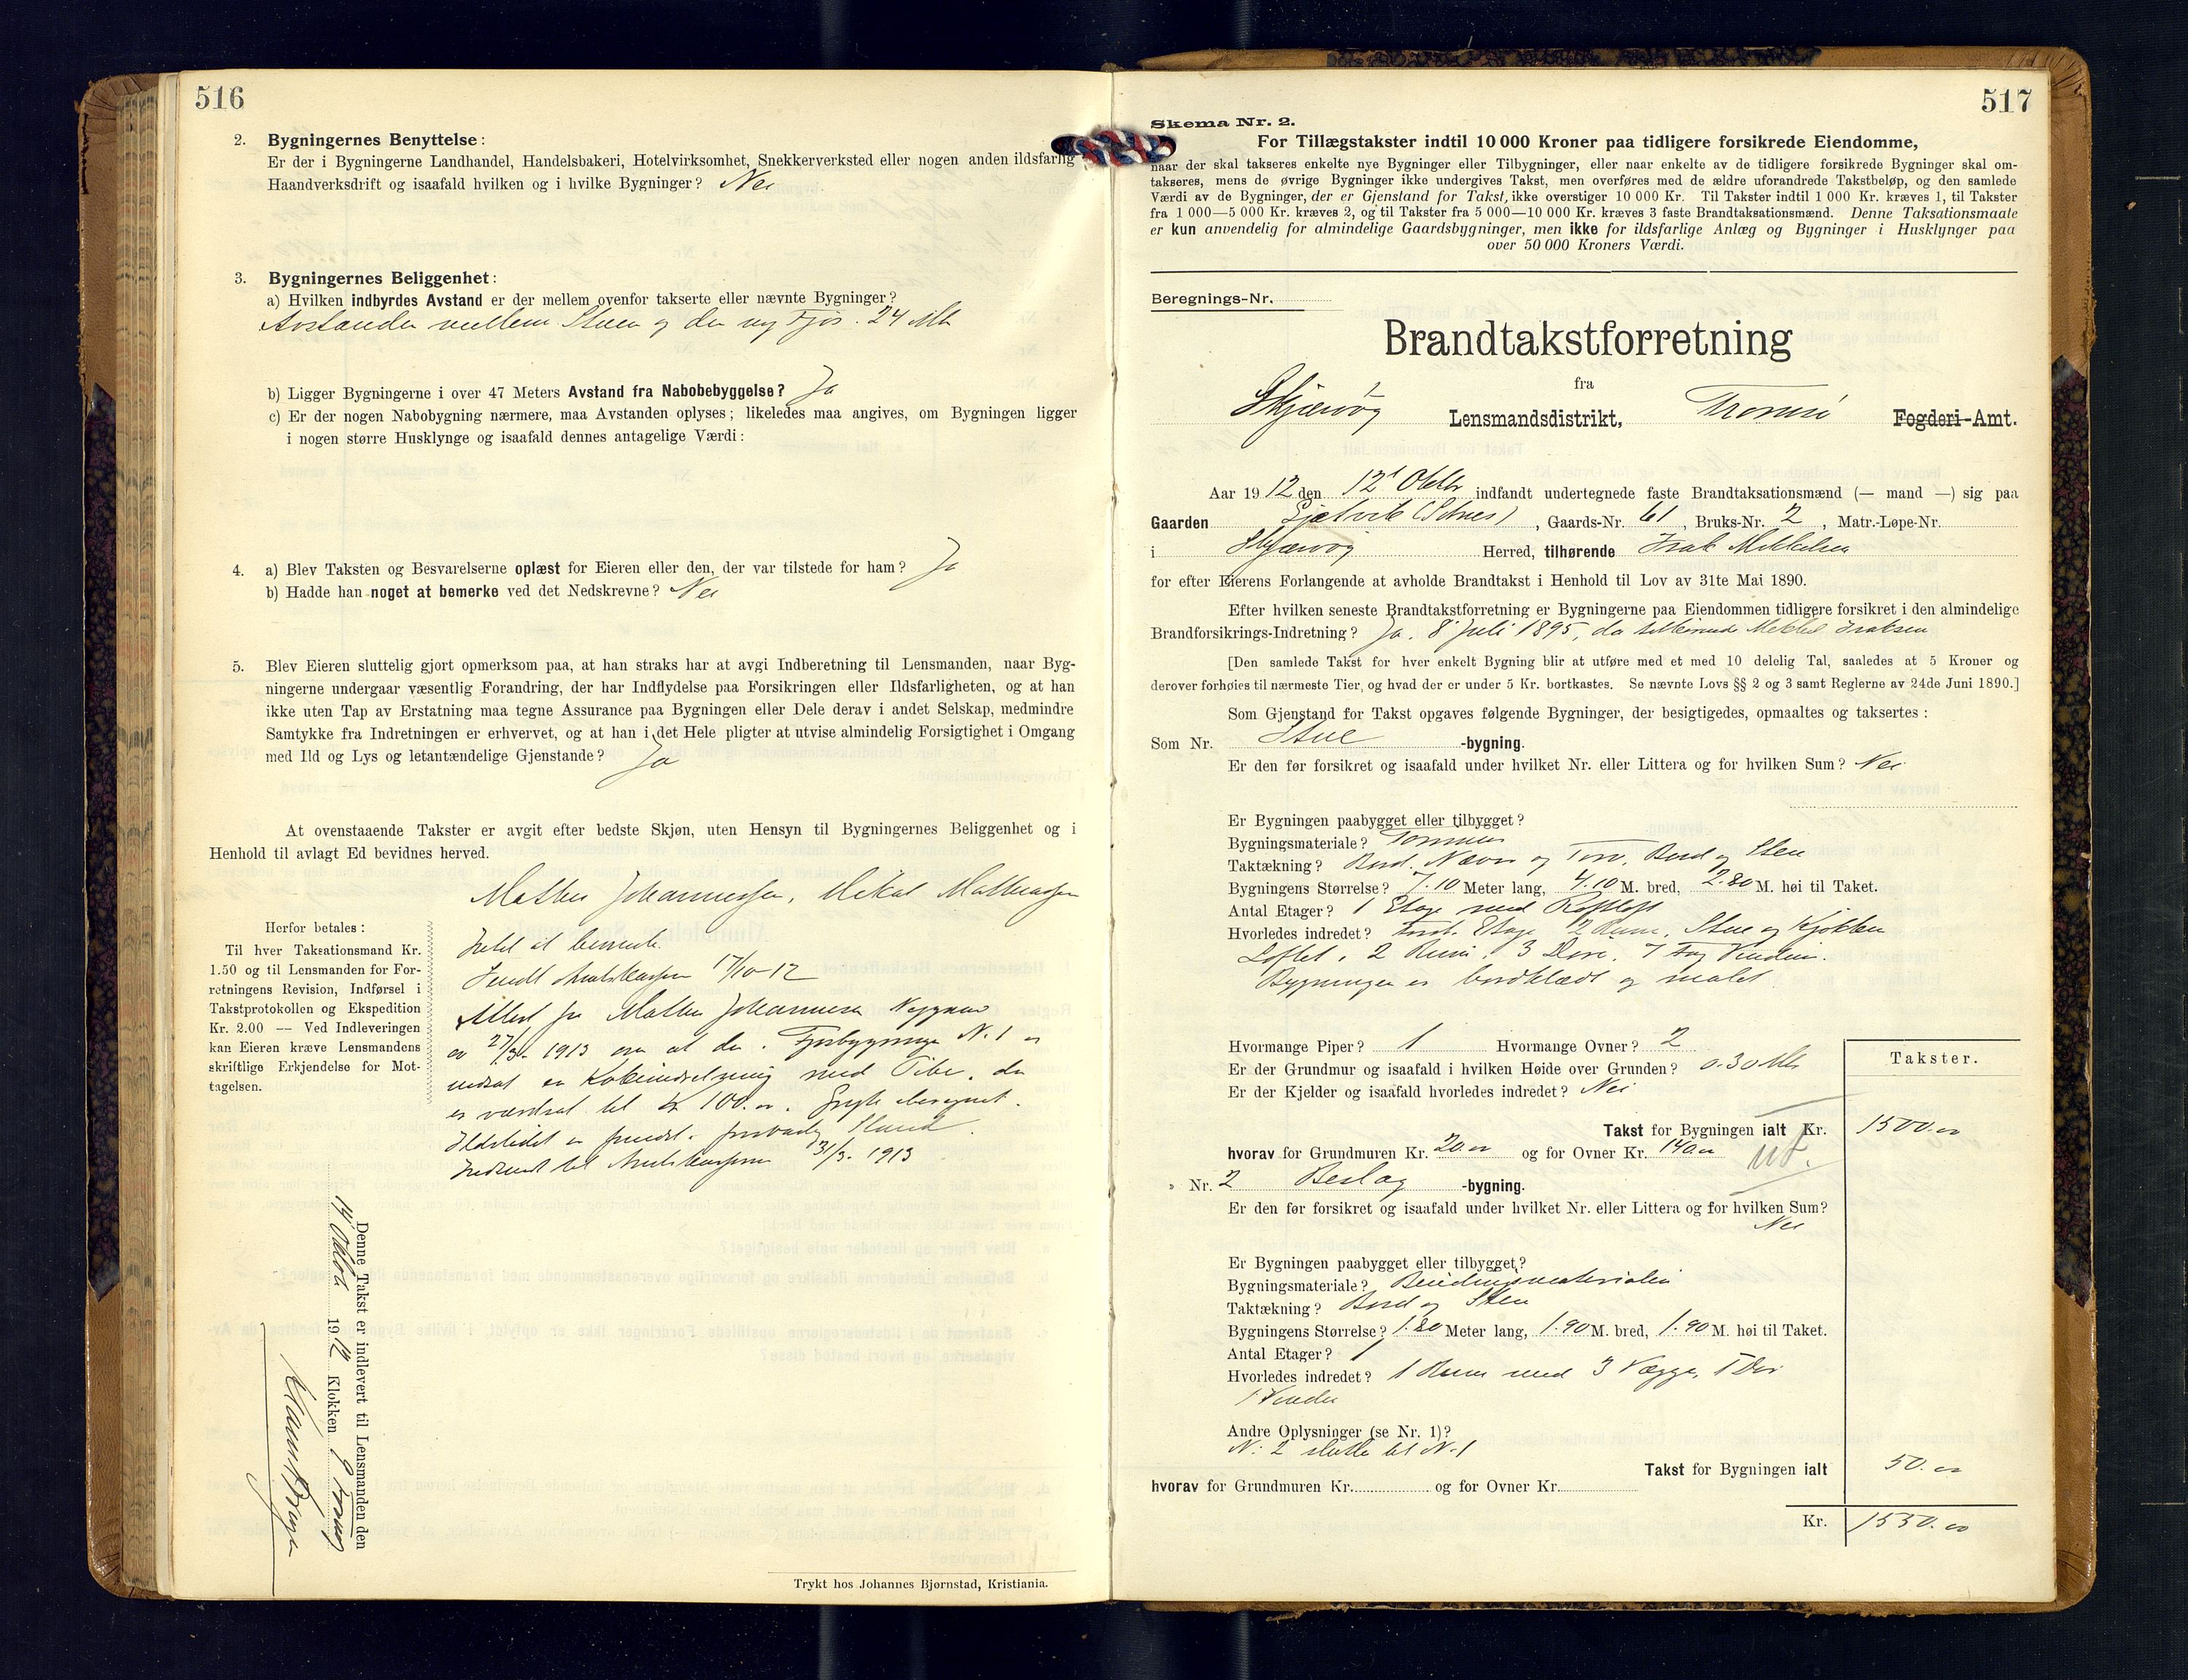 516
2. Bygningernes Benyttelse:
Er der i Bygningerne Landhandel, Handelsbakeri, Hotelvirksomhet, Snekkerverksted eller nogen anden ildsfarlig
Haandverksdrift og isaafald hvilken og i hvilke Bygninger? Nei
3. Bygningernes Beliggenhet:
a) Hvilken indbyrdes Avstand er der mellem ovenfor takserte eller nævnte Bygninger?
Avstanden mellem Stuen og den ny Fjøs. 24 Mtr
b) Ligger Bygningerne i over 47 Meters Avstand fra Nabobebyggelse? Ja
c) Er der nogen Nabobygning nærmere, maa Avstanden oplyses; likeledes maa angives, om Bygningen ligger
i nogen større Husklynge og isaafald dennes antagelige Værdi:
4. a) Blev Taksten og Besvarelserne oplæst for Eieren eller den, der var tilstede for ham? Ja
b) Hadde han noget at bemerke ved det Nedskrevne? Nei
5. Blev Eieren sluttelig gjort opmerksom paa, at han straks har at avgi Indberetning til Lensmanden, naar Byg-
ningerne undergaar væsentlig Forandring, der har Indflydelse paa Forsikringen eller Ildsfarligheten, og at han
ikke uten Tap av Erstatning maa tegne Assurance paa Bygningen eller Dele derav i andet Selskap, medmindre
Samtykke fra Indretningen er erhvervet, og at han i det Hele pligter at utvise almindelig Forsigtighet i Omgang
med Ild og Lys og letantændelige Gjenstande? Ja
At ovenstaaende Takster er avgit efter bedste Skjøn, uten Hensyn til Bygningernes Beliggenhet og i
Henhold til avlagt Ed bevidnes herved.
Mathis Johannessen, Mikal Mathiassen
Herfor betales:
Til hver Taksationsmand Kr.
1.50 og til Lensmanden for For-
retningens Revision, Indførsel i
Takstprotokollen og Ekspedition
Kr. 2.00 — Ved Indleveringen
kan Eieren kræve Lensmandens
skriftlige Erkjendelse for Mot-
tagelsen.
Intet at bemerke.
Sendt Amtskassereren 17/10-12
Attest fra Mathis Johannesen
av 27/3- 1913 om at der i Fjøsbygningen N. 1 er
indsat en Kokeindretning med Pibe, der
er værdsat til Kr 100.00.
Ildstedet er fundet i forsvarlig Stand.
Indsendt til Amtskassereren 31/3- 1913
Denne Takst er indlevert til Lensmanden den
14 Oktbr 1912 Klokken 9
Trykt hos Johannes Bjørnstad, Kristiania.
517
Skema Nr. 2.
For Tillægstakster indtil 10 000 Kroner paa tidligere forsikrede Eiendomme,
naar der skal takseres enkelte nye Bygninger eller Tilbygninger, eller naar enkelte av de tidligere forsikrede Bygninger skal om-
takseres, mens de øvrige Bygninger ikke undergives Takst, men overføres med de ældre uforandrede Takstbeløp, og den samlede
Værdi av de Bygninger, der er Gjenstand for Takst, ikke overstiger 10 000 Kr. Til Takster indtil 1 000 Kr. kræves 1, til Takster
fra 1 000—5 000 Kr. kræves 2, og til Takster fra 5 000—10 000 Kr. kræves 3 faste Brandtaksationsmænd. Denne Taksationsmaate
er kun anvendelig for almindelige Gaardsbygninger, men ikke for ildsfarlige Anlæg og Bygninger i Husklynger paa
over 50 000 Kroners Værdi.
Beregnings-Nr.
Brandtakstforretning
fra
Skjærvøy Lensmandsdistrikt, Tromsø Fogderi-Amt.
Aar 1912 den 12t Oktbr indfandt undertegnede faste Brandtaksationsmænd (— mand —) sig paa
Gaarden , Gaards-Nr. 61, Bruks-Nr. 2, Matr.-Løpe-Nr.
i Skjærvøy Herred, tilhørende Isak Mikkelsen
for efter Eierens Forlangende at avholde Brandtakst i Henhold til Lov av 31te Mai 1890.
Efter hvilken seneste Brandtakstforretning er Bygningerne paa Eiendommen tidligere forsikret i den almindelige
Brandforsikrings-Indretning? Ja. 8' Juli 1895, da tilhørende Mikkel Isaksen
[Den samlede Takst for hver enkelt Bygning blir at utføre med et med 10 delelig Tal, saaledes at 5 Kroner og
derover forhøies til nærmeste Tier, og hvad der er under 5 Kr. bortkastes. Se nævnte Lovs §§ 2 og 3 samt Reglerne av 24de Juni 1890.]
Som Gjenstand for Takst opgaves følgende Bygninger, der besigtigedes, opmaaltes og taksertes:
Som Nr. Stue -bygning.
Er den før forsikret og isaafald under hvilket Nr. eller Littera og for hvilken Sum? Nei
Er Bygningen paabygget eller tilbygget?
Bygningsmateriale? Tømmer
Taktækning? Bord. Næver og Torv. Bord og Sten
Bygningens Størrelse? 7.10 Meter lang, 4.10 M. bred, 2.80 M. høi til Taket.
Antal Etager? 1 Etage med Røstloft
Hvorledes indredet? Først. Etage 2 Rum, Stue og Kjøkken
Loftet. 2 Rum. 3 Døre. 7 Fag Vinduer.
Bygningen er bordklædt og malet.
Hvormange Piper? 1 Hvormange Ovner? 2
Er der Grundmur og isaafald i hvilken Høide over Grunden? 0.30 Mtr
Er der Kjelder og isaafald hvorledes indredet? Nei
Takster.
Takst for Bygningen ialt Kr. 1500.00
hvorav for Grundmuren Kr. 20.00 og for Ovner Kr. 140.00 ut.
» Nr. 2 Beslag -bygning.
Er den før forsikret og isaafald under hvilket Nr. eller Littera og for hvilken Sum?
Nei
Er Bygningen paabygget eller tilbygget?
Bygningsmateriale? Bindingsmaterialier
Taktækning? Bord og Sten
Bygningens Størrelse? 1.80 Meter lang, 1.90 M. bred, 1.90 M. høi til Taket.
Antal Etager? 1
Hvorledes indredet? 1 Rum med 3 Vægge, 1 Dør
1 Vindu
Andre Oplysninger (se Nr. 1)?
N: 2 støtte til N. 1
Takst for Bygningen ialt 50.00
hvorav for Grundmuren Kr. og for Ovner Kr.
Kr. 1550.00